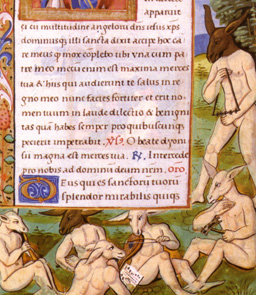 apparuit
cū multitudine angelorū dn̄s ihūs xp̄s
dominusq; illi sancta dixit accipe hoc ca
re meus q̄ mox cōplebo tibi vna cum pa
tre meo mecum est maxima merces
tua & his qui audierint te salus in re
gno meo nunc facies fortiter et erit no
mentuum in laude dilectio & benigni
tas quā habes semper pro quibuscumq;
pecierit impetrabit O beate dyoni
su magna est merces tua. R. Intercede
pro nobis ad dominū deum nrm. oro.
Deus qui es sanctorū tuorū
splendor mirabilis quiq;